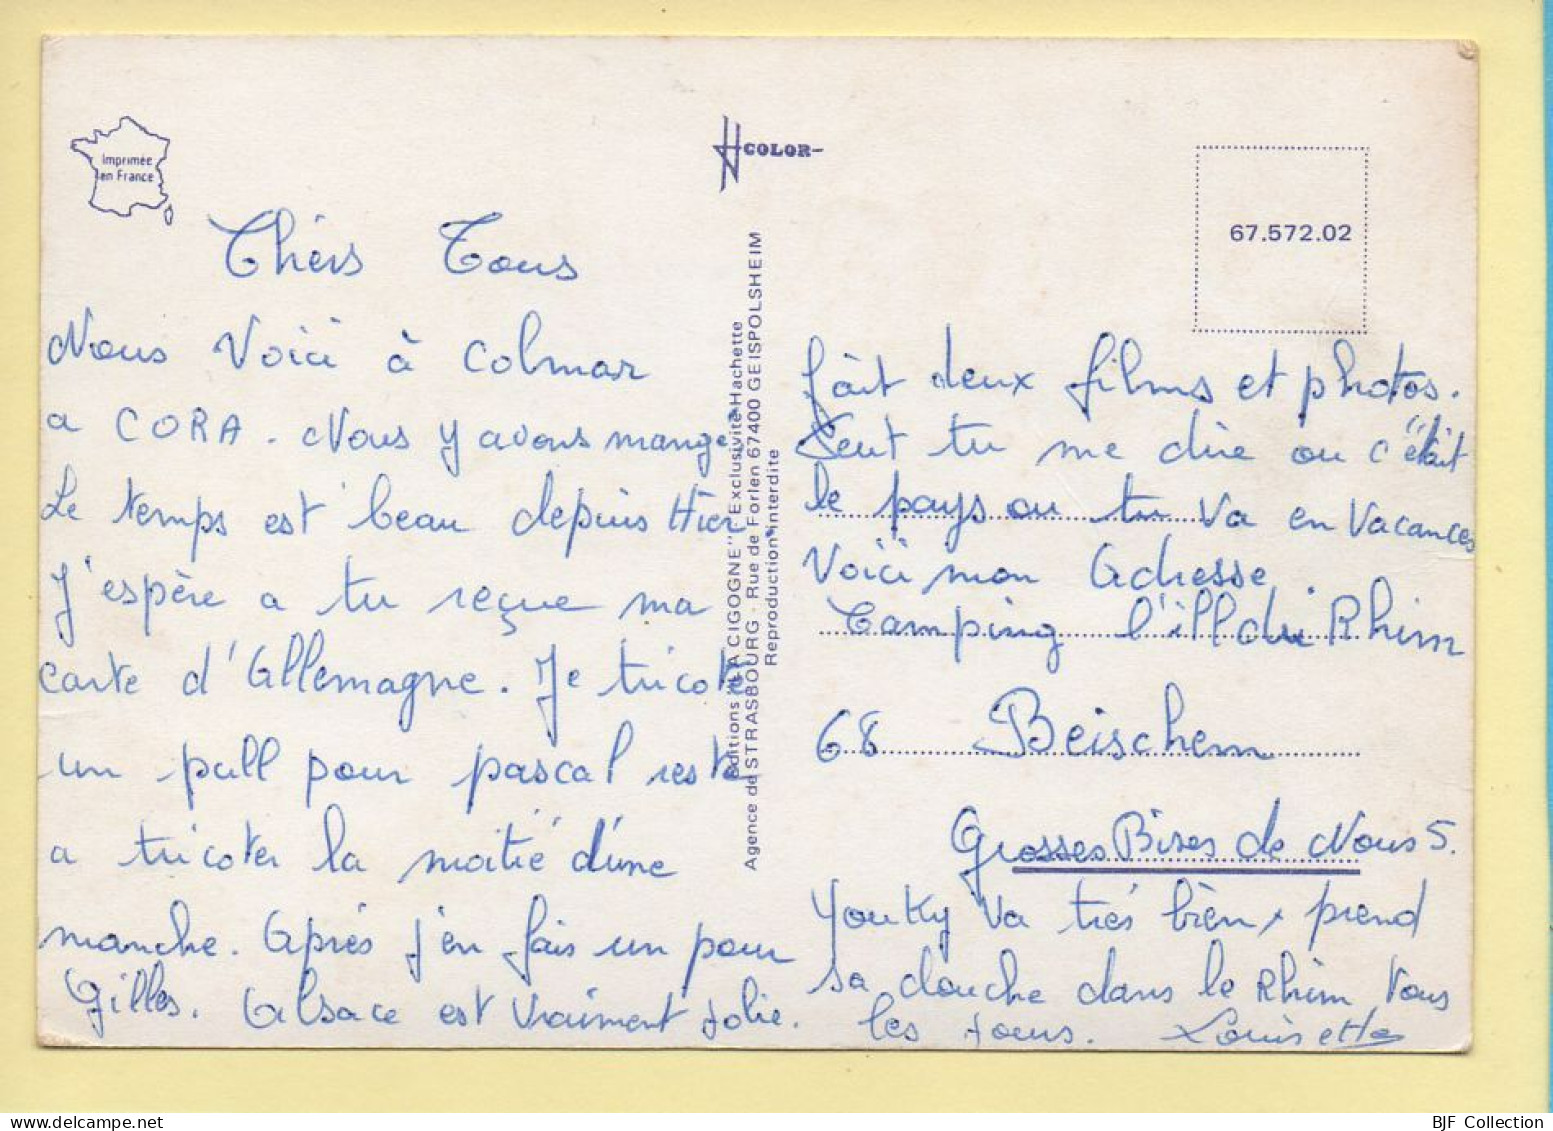 Imprimée
en France
COLOR
67.572.02
Editions "LA CIGOGNE" Exclusivité Hachette
Agence de STRASBOURG - Rue de Forlen 67400 GEISPOLSHEIM
Reproduction interdite
Chérs Tous
Nous Voici à Colmar
a CORA. Nous y avons mange
Le temps est beau depuis Hier
J'espère a tu reçue ma
carte d'Allemagne. Je tricote
un pull pour pascal reste
a tricoter la moitié d'une
manche. Aprés j'en fais un pour
Gilles. Alsace est vraiment jolie.
fait deux films et photos.
Peut tu me dire ou c'était
le pays ou tu va en vacances
Voici mon Adresse
Camping l'ill du Rhim
68 Beischem
Grosses Bises de Nous 5.
Youky va trés bien prend
sa douche dans le Rhim Tous
les jours. Louisette
BJF Collection